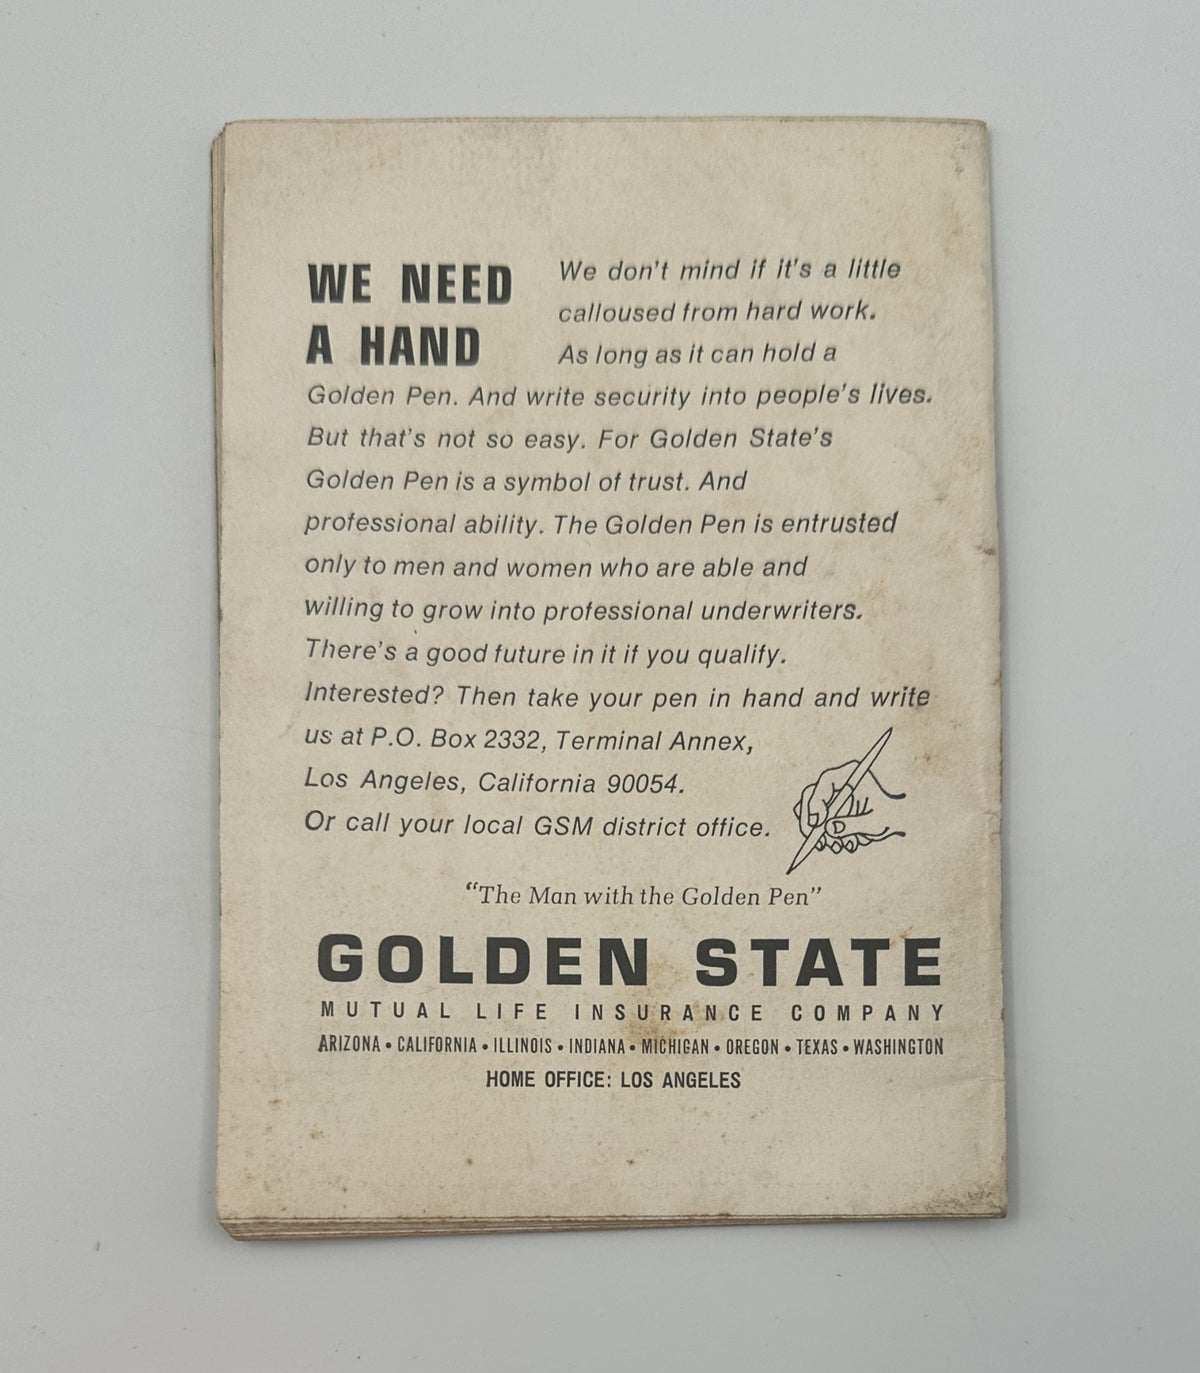 WE NEED
A HAND
We don't mind if it's a little
calloused from hard work.
As long as it can hold a
Golden Pen. And write security into people's lives.
But that's not so easy. For Golden State's
Golden Pen is a symbol of trust. And
professional ability. The Golden Pen is entrusted
only to men and women who are able and
willing to grow into professional underwriters.
There's a good future in it if you qualify.
Interested? Then take your pen in hand and write
us at P.O. Box 2332, Terminal Annex,
Los Angeles, California 90054.
Or call your local GSM district office.
"The Man with the Golden Pen"
GOLDEN STATE
MUTUAL LIFE INSURANCE COMPANY
ARIZONA • CALIFORNIA • ILLINOIS • INDIANA • MICHIGAN • OREGON • TEXAS • WASHINGTON
HOME OFFICE: LOS ANGELES